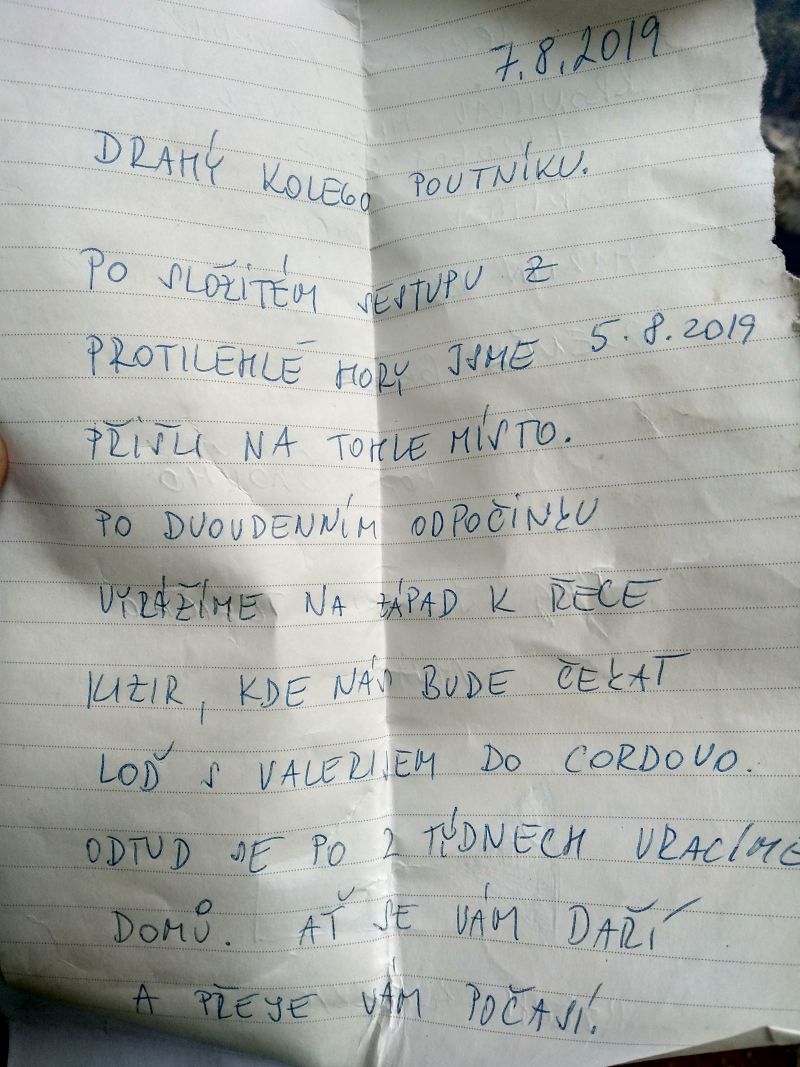 7.8.2019
DRAHÝ KOLEGO POUTNÍKU.
PO SLOŽITÉM SESTUPU Z
PROTILEHLÉ HORY JSME 5.8.2019
PŘIŠLI NA TOHLE MÍSTO.
PO DVOUDENNÍM ODPOČINKU
VYRÁŽÍME NA ZÁPAD K ŘECE
KIZIR, KDE NÁS BUDE ČEKAT
LOĎ S VALERIJEM DO CORDOVO.
ODTUD SE PO 2 TÝDNECH VRACÍME
DOMŮ. AŤ SE VÁM DAŘÍ
A PŘEJE VÁM POČASÍ.